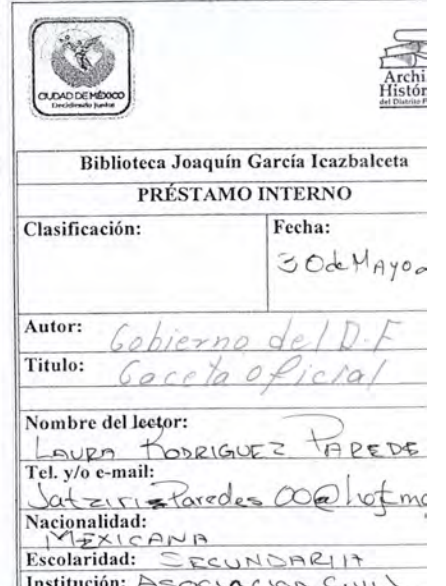 CIUDAD DE MÉXICO
Decidiendo Juntos
Archi
Histór
del Distrito F
Biblioteca Joaquín García Icazbalceta
PRÉSTAMO INTERNO
Clasificación:
Fecha:
30 de MAYO d
Autor: Gobierno del D.F
Titulo: Gaceta oficial
Nombre del lector:
LAURA RODRIGUEZ PAREDE
Tel. y/o e-mail:
Jatziri Paredes 00@hotma
Nacionalidad:
MEXICANA
Escolaridad: SECUNDARIA
Institución: ASOCIACION CIVIL